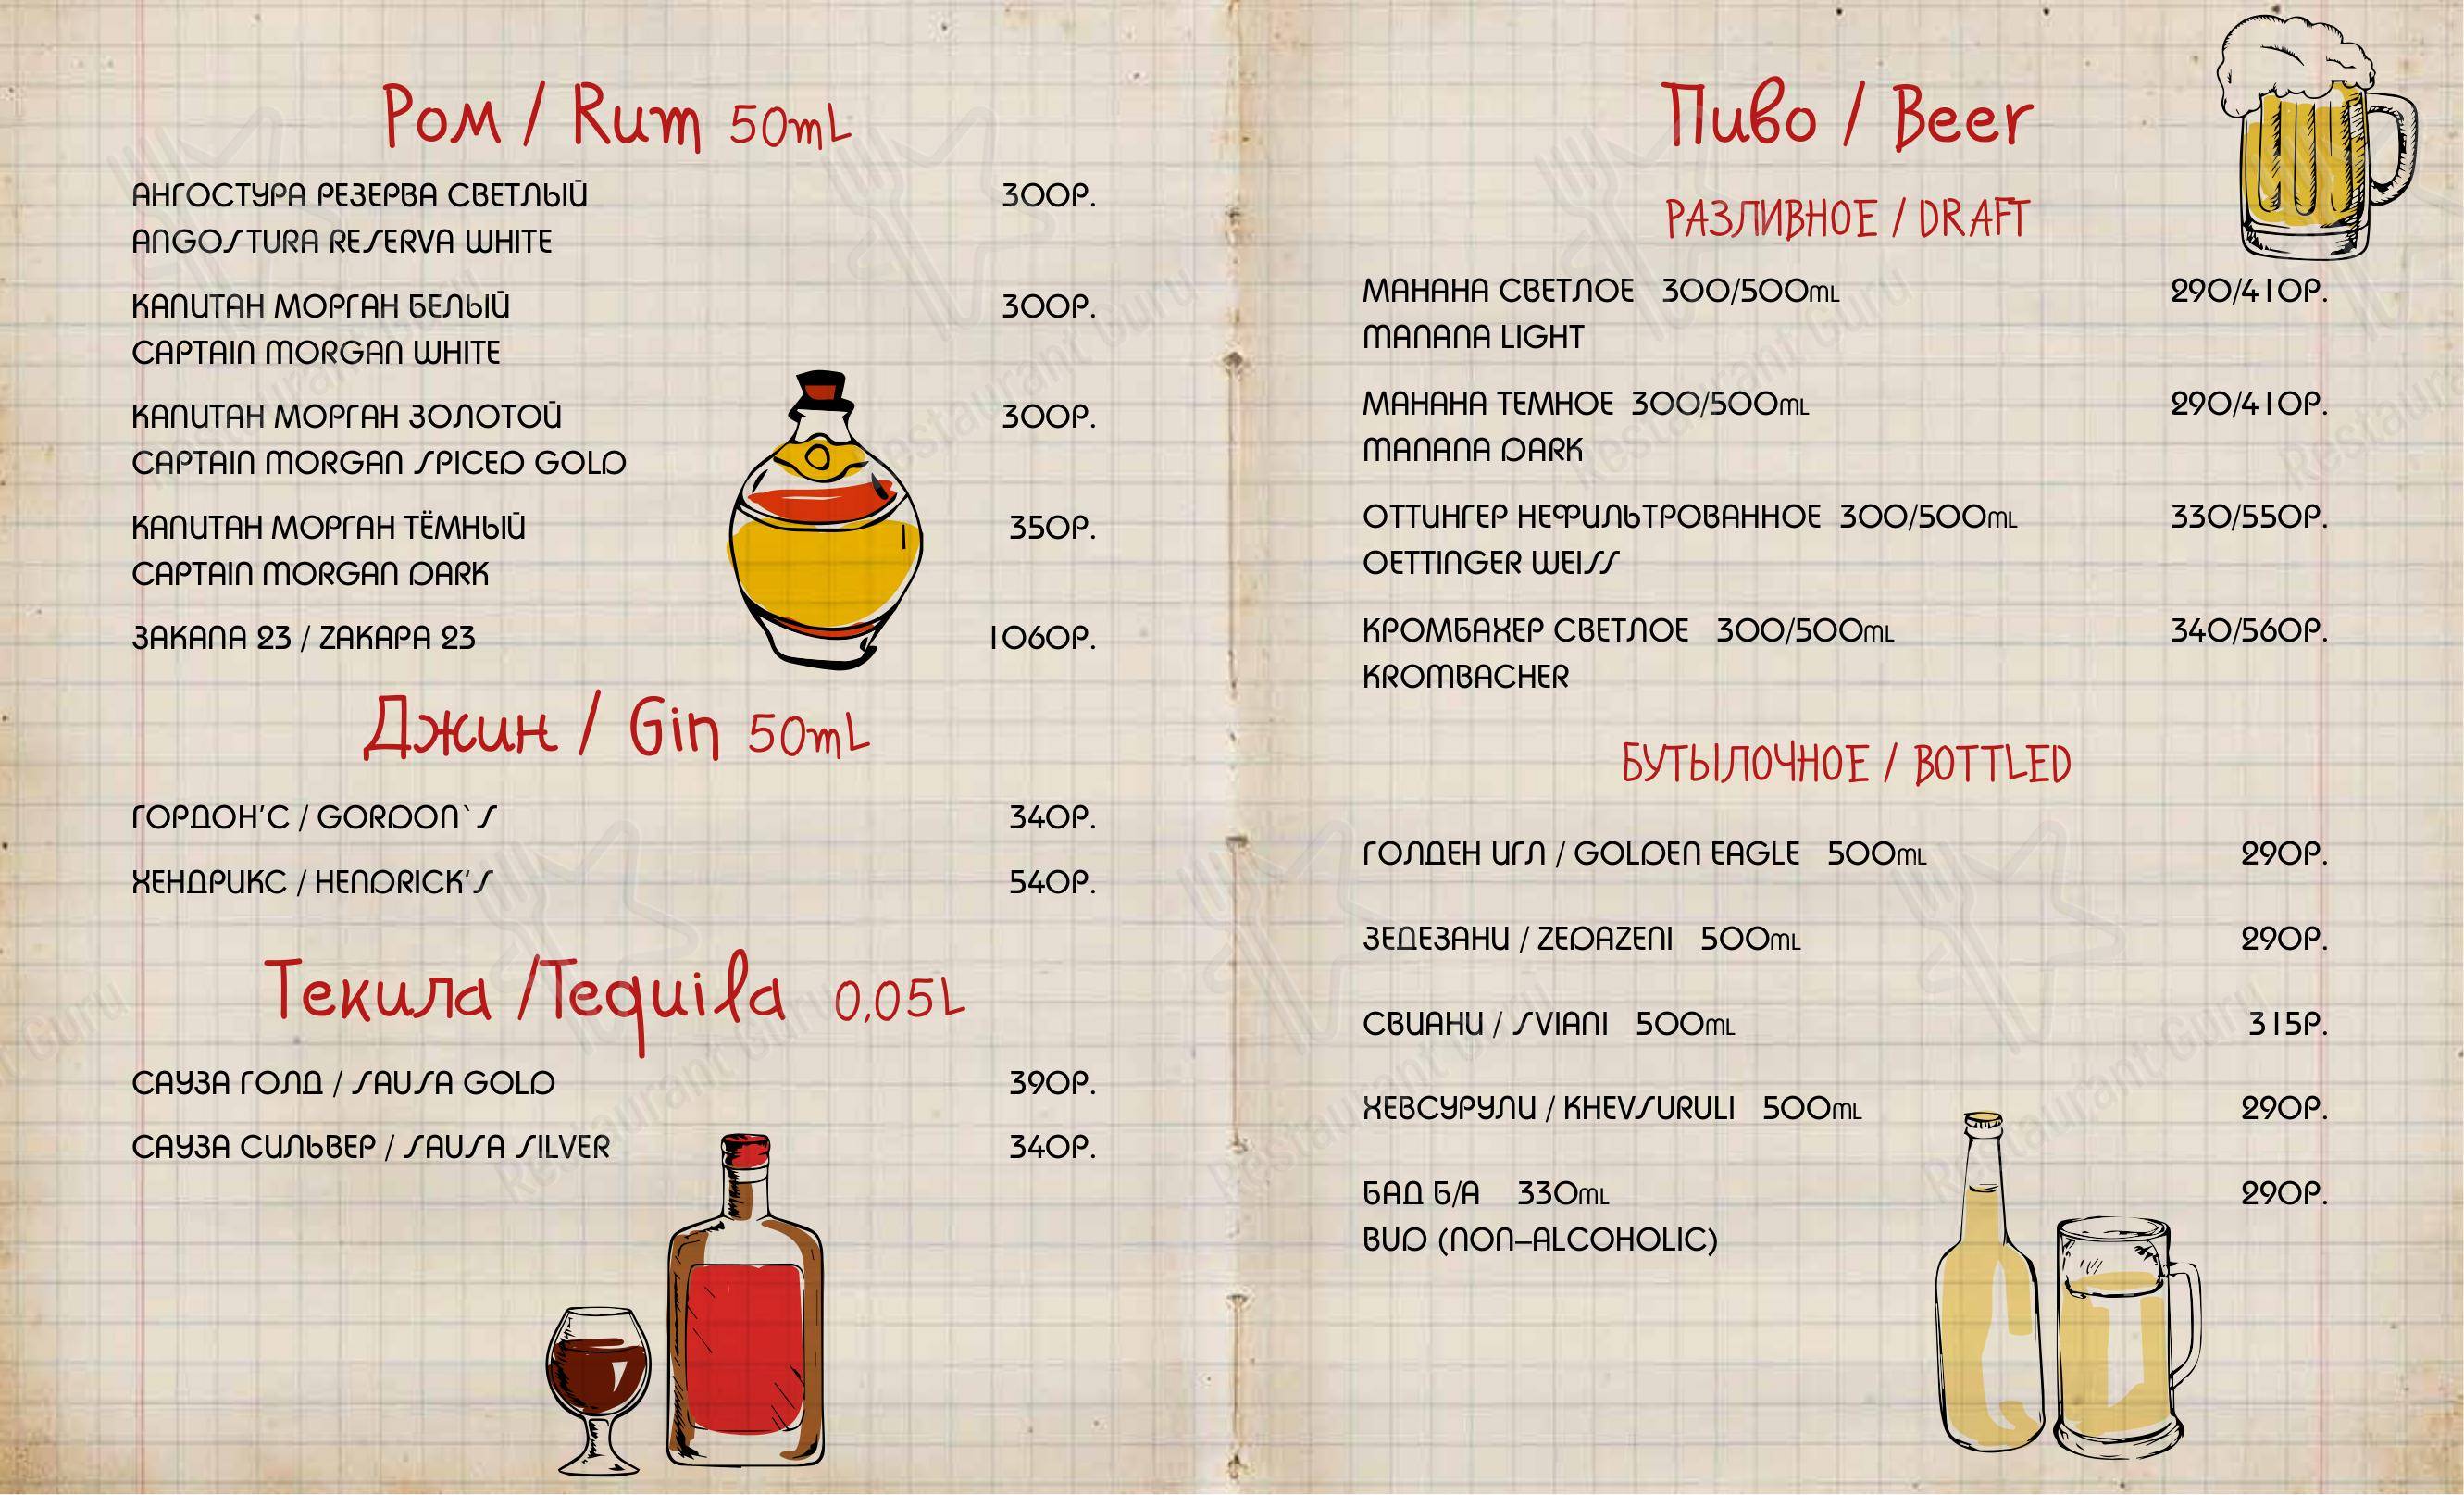 Ром / Rum 50mL
АНГОСТУРА РЕЗЕРВА СВЕТЛЫЙ 300Р.
ANGOSTURA RESERVA WHITE
КАПИТАН МОРГАН БЕЛЫЙ 300Р.
CAPTAIN MORGAN WHITE
КАПИТАН МОРГАН ЗОЛОТОЙ 300Р.
CAPTAIN MORGAN SPICED GOLD
КАПИТАН МОРГАН ТЁМНЫЙ 350Р.
CAPTAIN MORGAN DARK
ЗАКАПА 23 / ZAKAPA 23 1060Р.
Джин / Gin 50mL
ГОРДОН'С / GORDON`S 340Р.
ХЕНДРИКС / HENDRICK'S 540Р.
Текила /Tequila 0,05L
САУЗА ГОЛД / SAUSA GOLD 390Р.
САУЗА СИЛЬВЕР / SAUSA SILVER 340Р.
Пиво / Beer
РАЗЛИВНОЕ / DRAFT
МАНАНА СВЕТЛОЕ 300/500ML 290/410Р.
MANANA LIGHT
МАНАНА ТЕМНОЕ 300/500ML 290/410Р.
MANANA DARK
ОТТИНГЕР НЕФИЛЬТРОВАННОЕ 300/500ML 330/550Р.
OETTINGER WEISS
КРОМБАХЕР СВЕТЛОЕ 300/500ML 340/560Р.
KROMBACHER
БУТЫЛОЧНОЕ / BOTTLED
ГОЛДЕН ИГЛ / GOLDEN EAGLE 500ML 290Р.
ЗЕДЕЗАНИ / ZEDAZENI 500ML 290Р.
СВИАНИ / SVIANI 500ML 315Р.
ХЕВСУРУЛИ / KHEVSURULI 500ML 290Р.
БАД Б/А 330ML 290Р.
BUD (NON-ALCOHOLIC)
Restaurant Guru